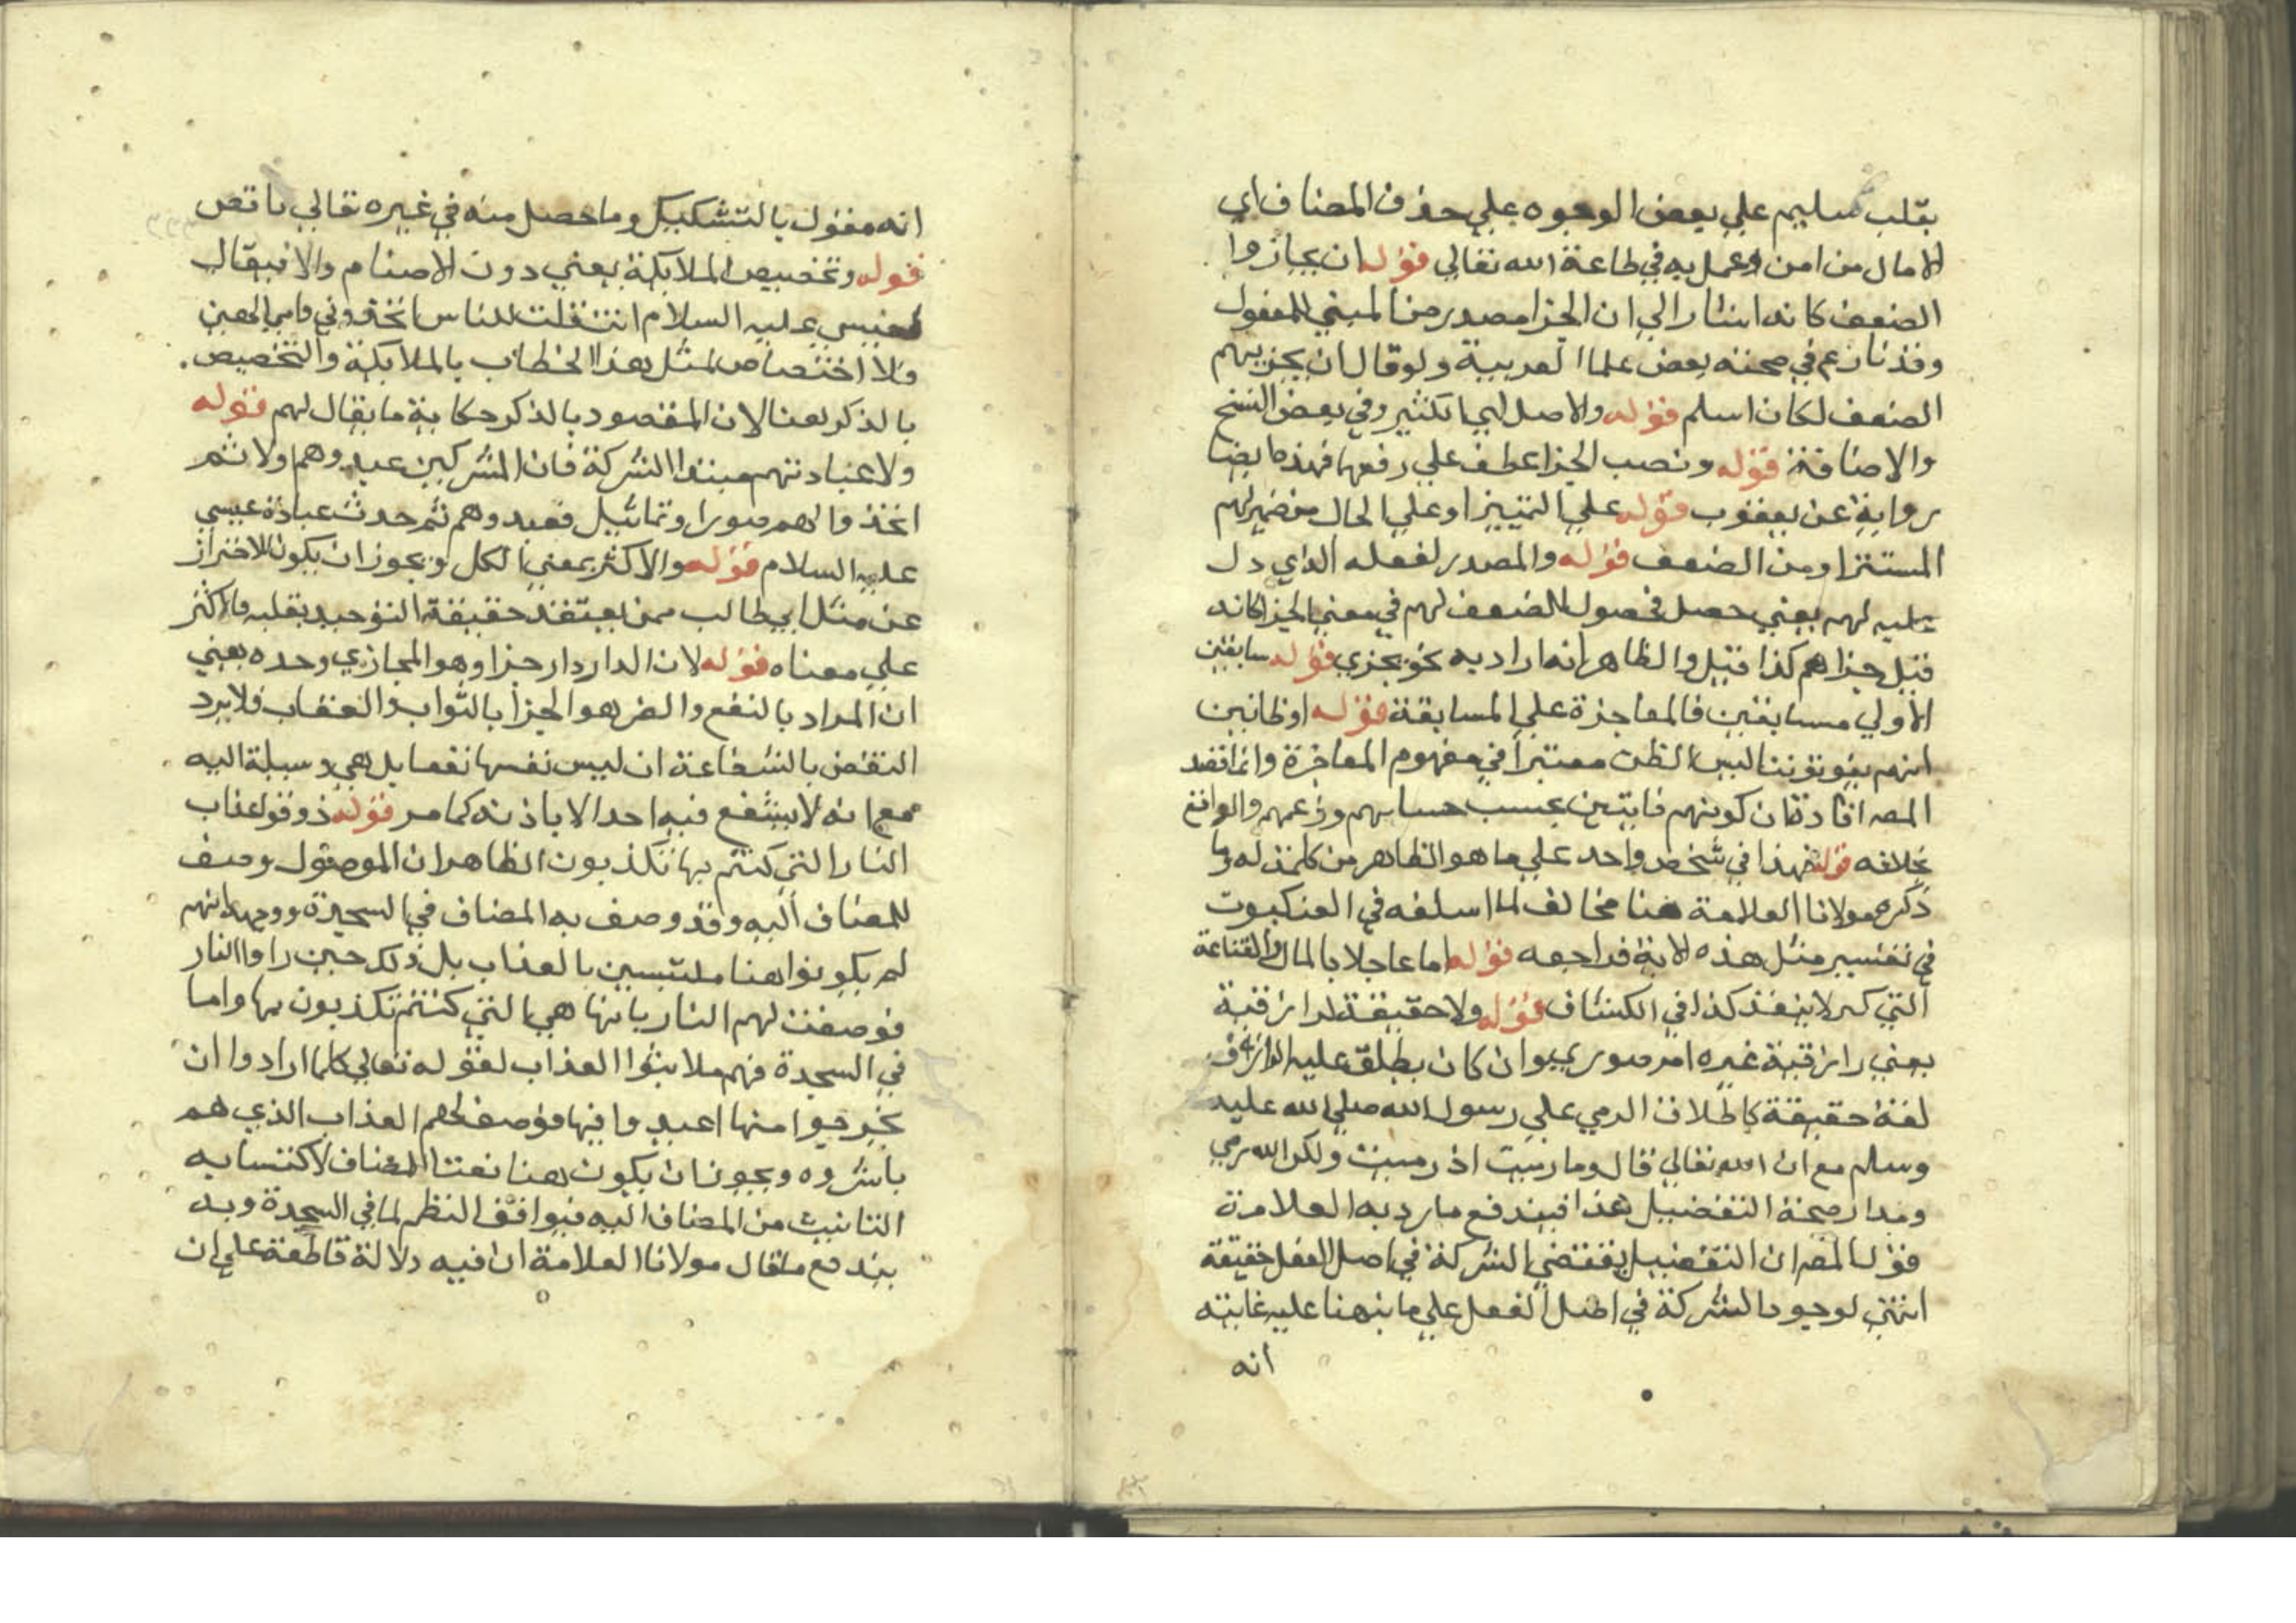 بقلب سليم علي بعض الوجوه علي حذف المضاف اي
الا مال من امن وعمل به في طاعة الله تعالي قوله ان يجازوا
الضعف كانه اشارالي ان الجزا مصدر من المبني للمفعول
وقد تنازع في صحته بعض علما العربية ولو قال ان يجزيهم
الضعف لكان اسلم قوله والاصل لبيا تكثير وفي بعض النسخ
والاضافة قوله ونصب الجزا عطف علي رفعها فهذه ايضا
رواية عن يعقوب قوله علي التمييز او علي الحال من ضمير لهم
المستتر او من الضعف قوله والمصدر لفعله الذي دل
عليه لهم يعني حصل فحصول الضعف لهم في معني الجزا كانه
قيل جزاهم كذا قيل والظاهر انه اراد به نحو يجزي قوله سابقين
الاولي مسابقين فالمعاجزة علي المسابقة قوله او ظانين
انهم يفوتوننا ليس الظن معتبرا في مفهوم المعاجزة وانما قصد
المص افادة ان كونهم فايتين بحسب حسابهم وزعمهم والواقع
بخلافه قوله فهذا في شخص واحد علي ما هو الظاهر من كلمة له وما
ذكره مولانا العلامة هنا مخالف لما اسلفه في العنكبوت
في تفسير مثل هذه الاية فراجعه قوله اما عاجلا بالمال والقناعة
التي كنز لا ينفد كذا في الكشاف قوله ولا حقيقة لرازقية
يعني رازقية غيره امر صوري وان كان يطلق عليه الرازق
لغة حقيقة كاطلاق الرمي علي رسول الله صلي الله عليه
وسلم مع ان الله تعالي قال وما رميت اذ رميت ولكن الله رمي
ومدار صحة التفضيل هذا فيندفع ما رد به العلامة
قول المص ان التفضيل يقتضي الشركة في اصل الفعل حقيقة
انتهي لوجود الشركة في اصل الفعل علي ما نبهنا عليه غايته
انه
انه مقول بالتشكيك وما حصل منه في غيره تعالي ناقص
قوله وتخصيص الملايكة يعني دون الاصنام والا فيقال
لعيسي عليه السلام اانت قلت للناس اتخذوني وامي الهين
فلا اختصاص لمثل هذا الخطاب بالملايكة والتخصيص
بالذكر لعنا لان المقصود بالذكر حكاية ما يقال لهم قوله
ولا عبادتهم مبتدا الشركة فان المشركين عبدوهم ولا ثم
اتخذوا لهم صورا وتماثيل فعبدوهم ثم حدث عبادة عيسي
عليه السلام قوله والاكثر بمعني الكل ويجوز ان يكون للاحتراز
عن مثل ابي طالب ممن يعتقد حقيقة التوحيد بقلبه فالاكثر
علي معناه قوله لان الدار دار جزا وهو المجازي وحده يعني
ان المراد بالنفع والضر هو الجزا بالثواب والعقاب فلا يرد
النقض بالشفاعة ان ليس نفسها نفعا بل هي وسيلة اليه
مع انه لا يشفع فيه احد الا باذنه كما مر قوله ذوقوا عذاب
النار التي كنتم بها تكذبون الظاهر ان الموصول وصف
للمضاف اليه وقد وصف به المضاف في السجدة ووجهه انهم
لم يكونوا هنا ملتبسين بالعذاب بل ذلك حين راوا النار
فوصفت لهم النار بانها هي التي كنتم تكذبون بها واما
في السجدة فهم ملابثوا العذاب لقوله تعالي كلما ارادوا ان
يخرجوا منها اعيدوا فيها فوصف لهم العذاب الذي هم
باشروه ويجوز ان يكون هنا نعتا للمضاف لاكتسابه
التانيث من المضاف اليه فيوافق النظم لما في السجدة وبه
يندفع ما قال مولانا العلامة ان فيه دلالة قاطعة علي ان